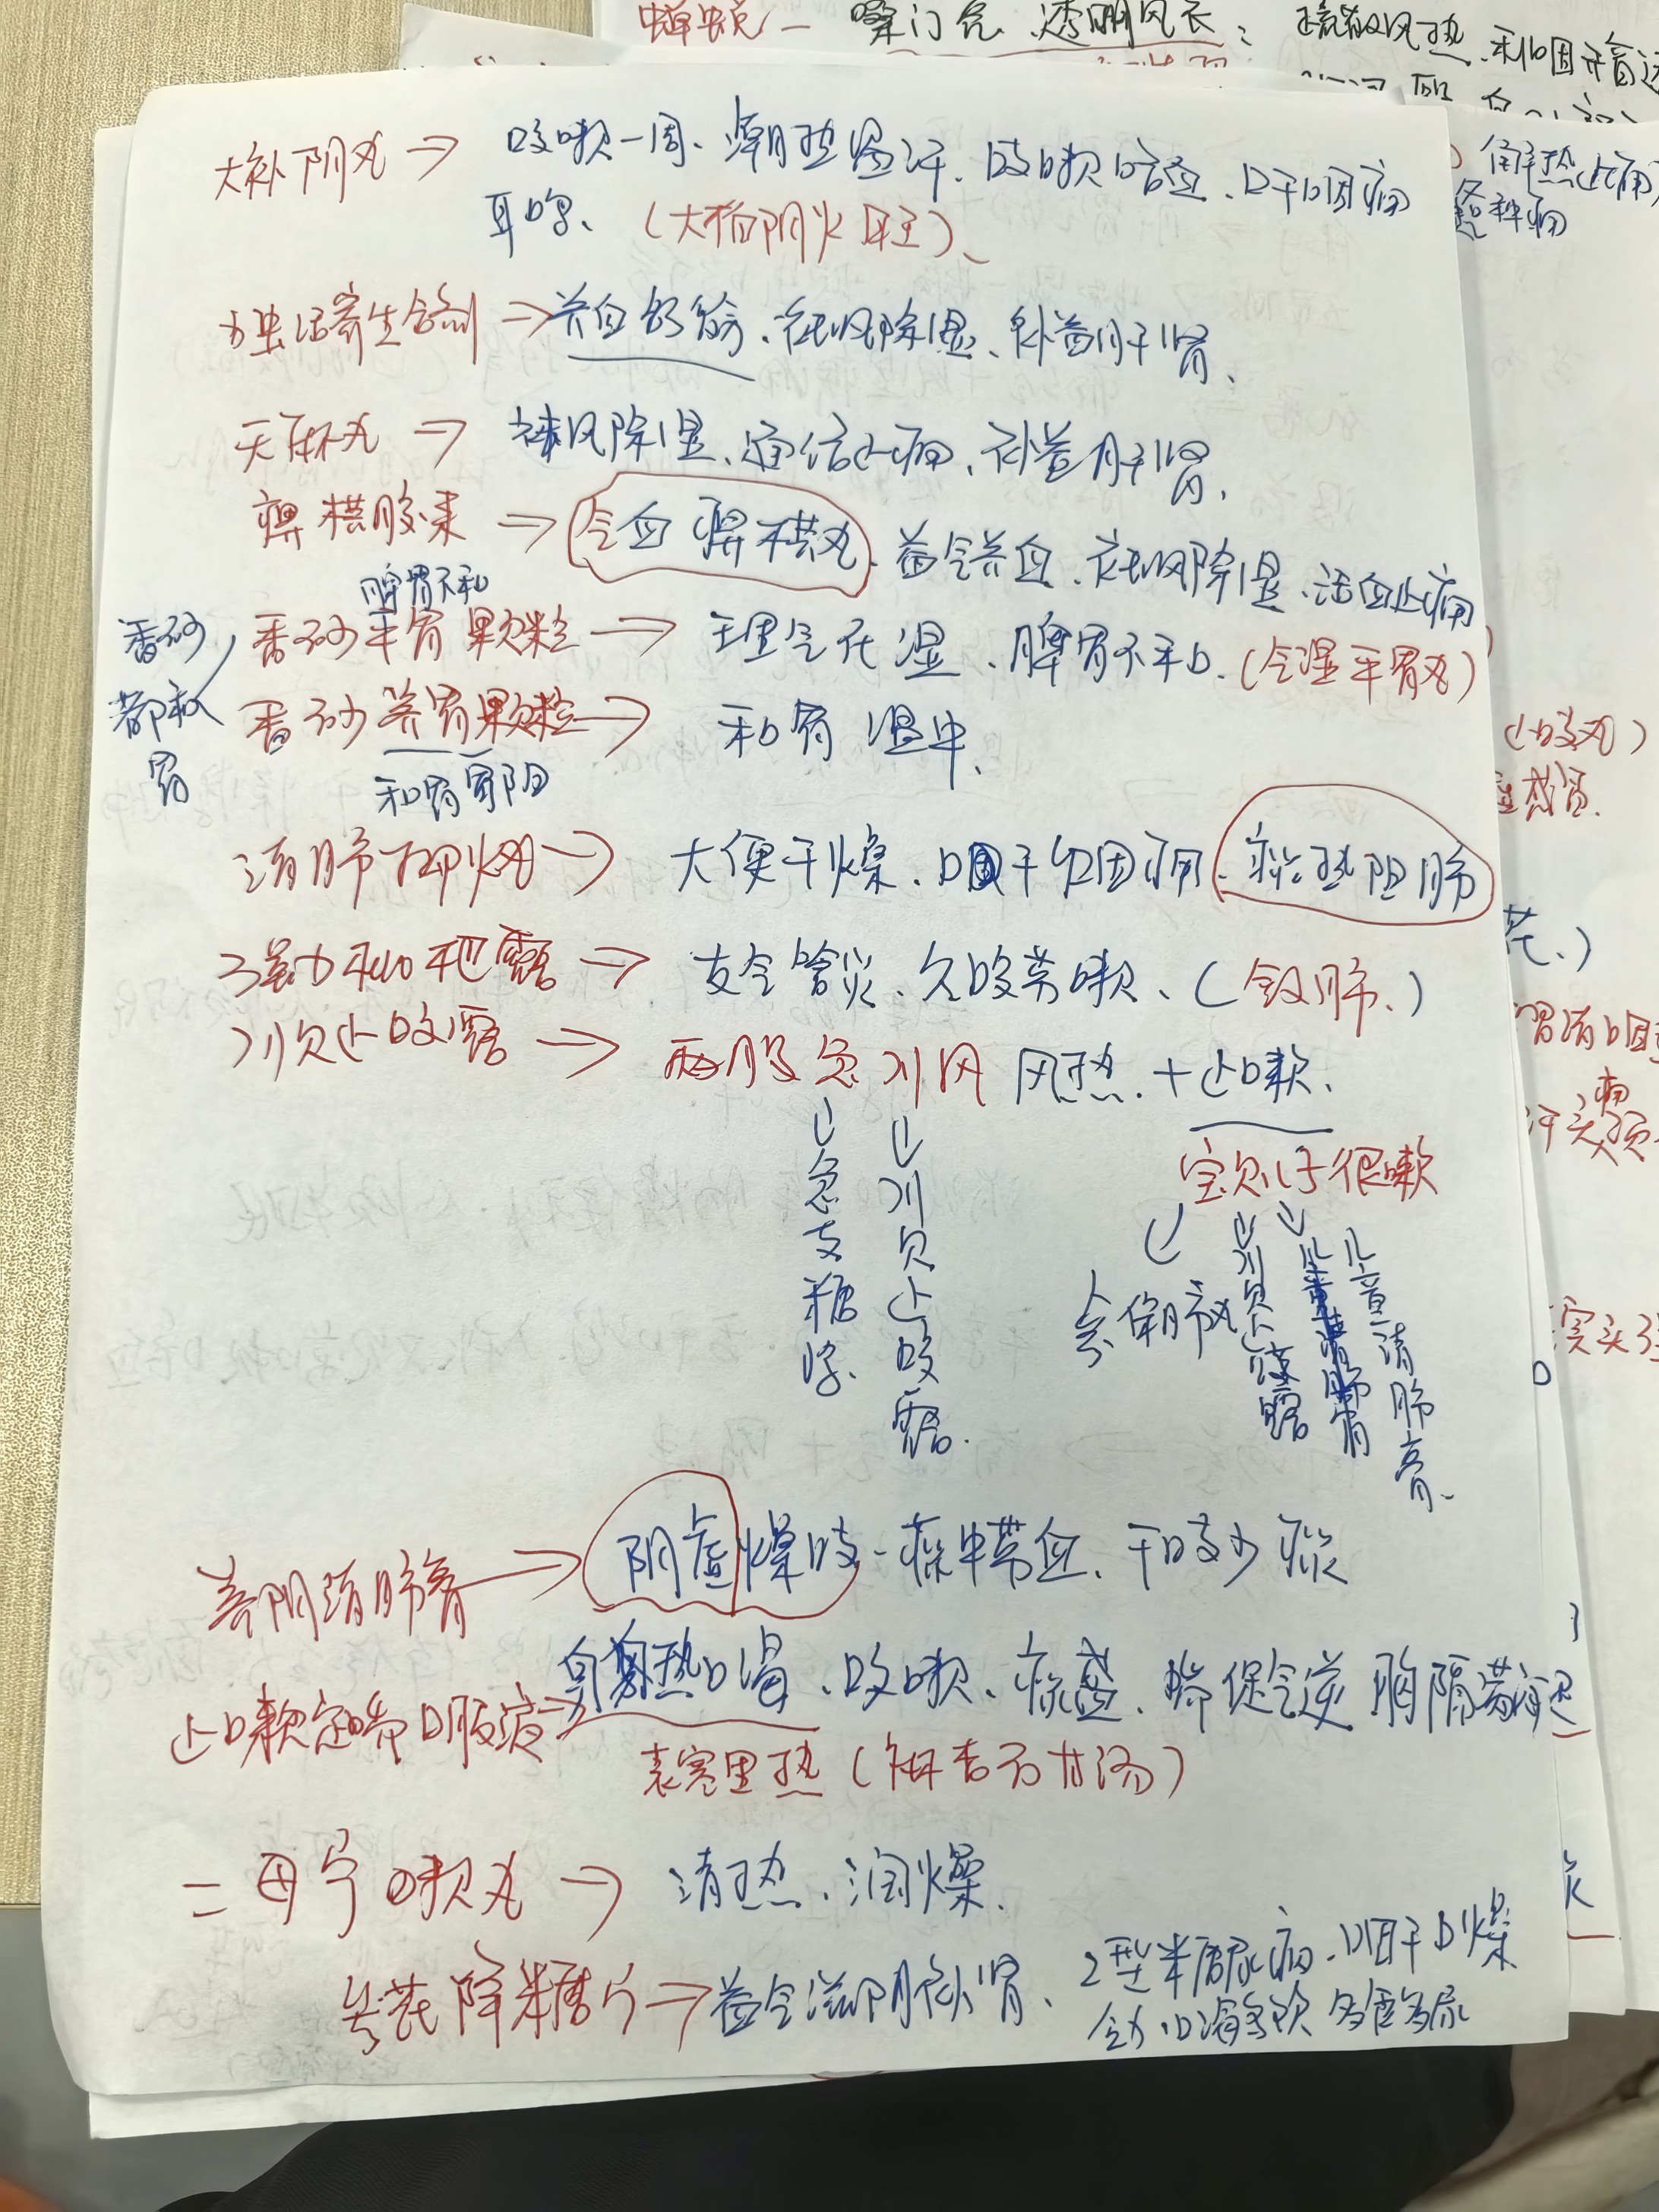 蝉蜕— 透明风衣: 疏散风热、利咽开音透
解热止痛
各种痛
大补阴丸→ 咳嗽一周、潮热盗汗、咳嗽咯血、口干咽痛
耳鸣、(大相阴火旺)、
独活寄生合剂→养血舒筋、祛风除湿、补益肝肾、
天麻丸→ 祛风除湿、通络止痛、补益肝肾、
痹祺胶囊→气血痹祺丸、益气养血、祛风除湿、活血止痛
脾胃不和
香砂平胃颗粒→理气化湿、脾胃不和.(气湿平胃丸)
香砂都和胃
香砂养胃颗粒→ 和胃温中、
和胃胃阳
清肺抑火丸→ 大便干燥、口干咽痛、痰热阻肺
强力枇杷露→ 支气管炎、久咳劳嗽、(敛肺、)
川贝止咳露→ 两股急川风 风热.+止嗽.
↓急支糖浆.
↓川贝止咳露.
宝贝儿很嗽
↓ 保肺丸
↓川贝止咳露
↓
儿童清肺膏、
养阴清肺膏→阴虚燥咳-痰中带血、干咳少痰
止嗽定喘口服液→身热口渴、咳嗽、痰盛、喘促气逆 胸膈满闷
表寒里热(麻杏石甘汤)
二母宁嗽丸→ 清热、润燥.
参芪降糖片→益气滋阴补肾、2型糖尿病、咽干口燥
口渴多饮 多食多尿
止咳丸)
感冒.
花、)